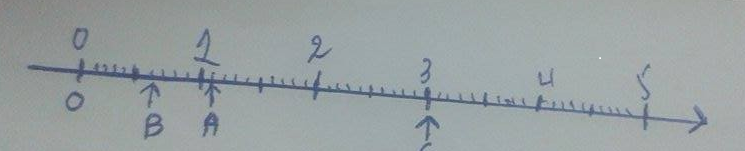 0 1 2 3 4 5
0
B A